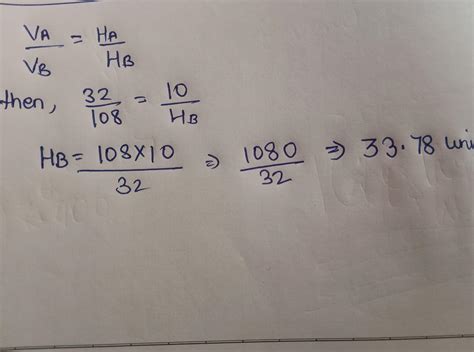 VA/VB = HA/HB
then, 32/108 = 10/HB
HB = 108×10/32 ⇒ 1080/32 ⇒ 33.78 uni